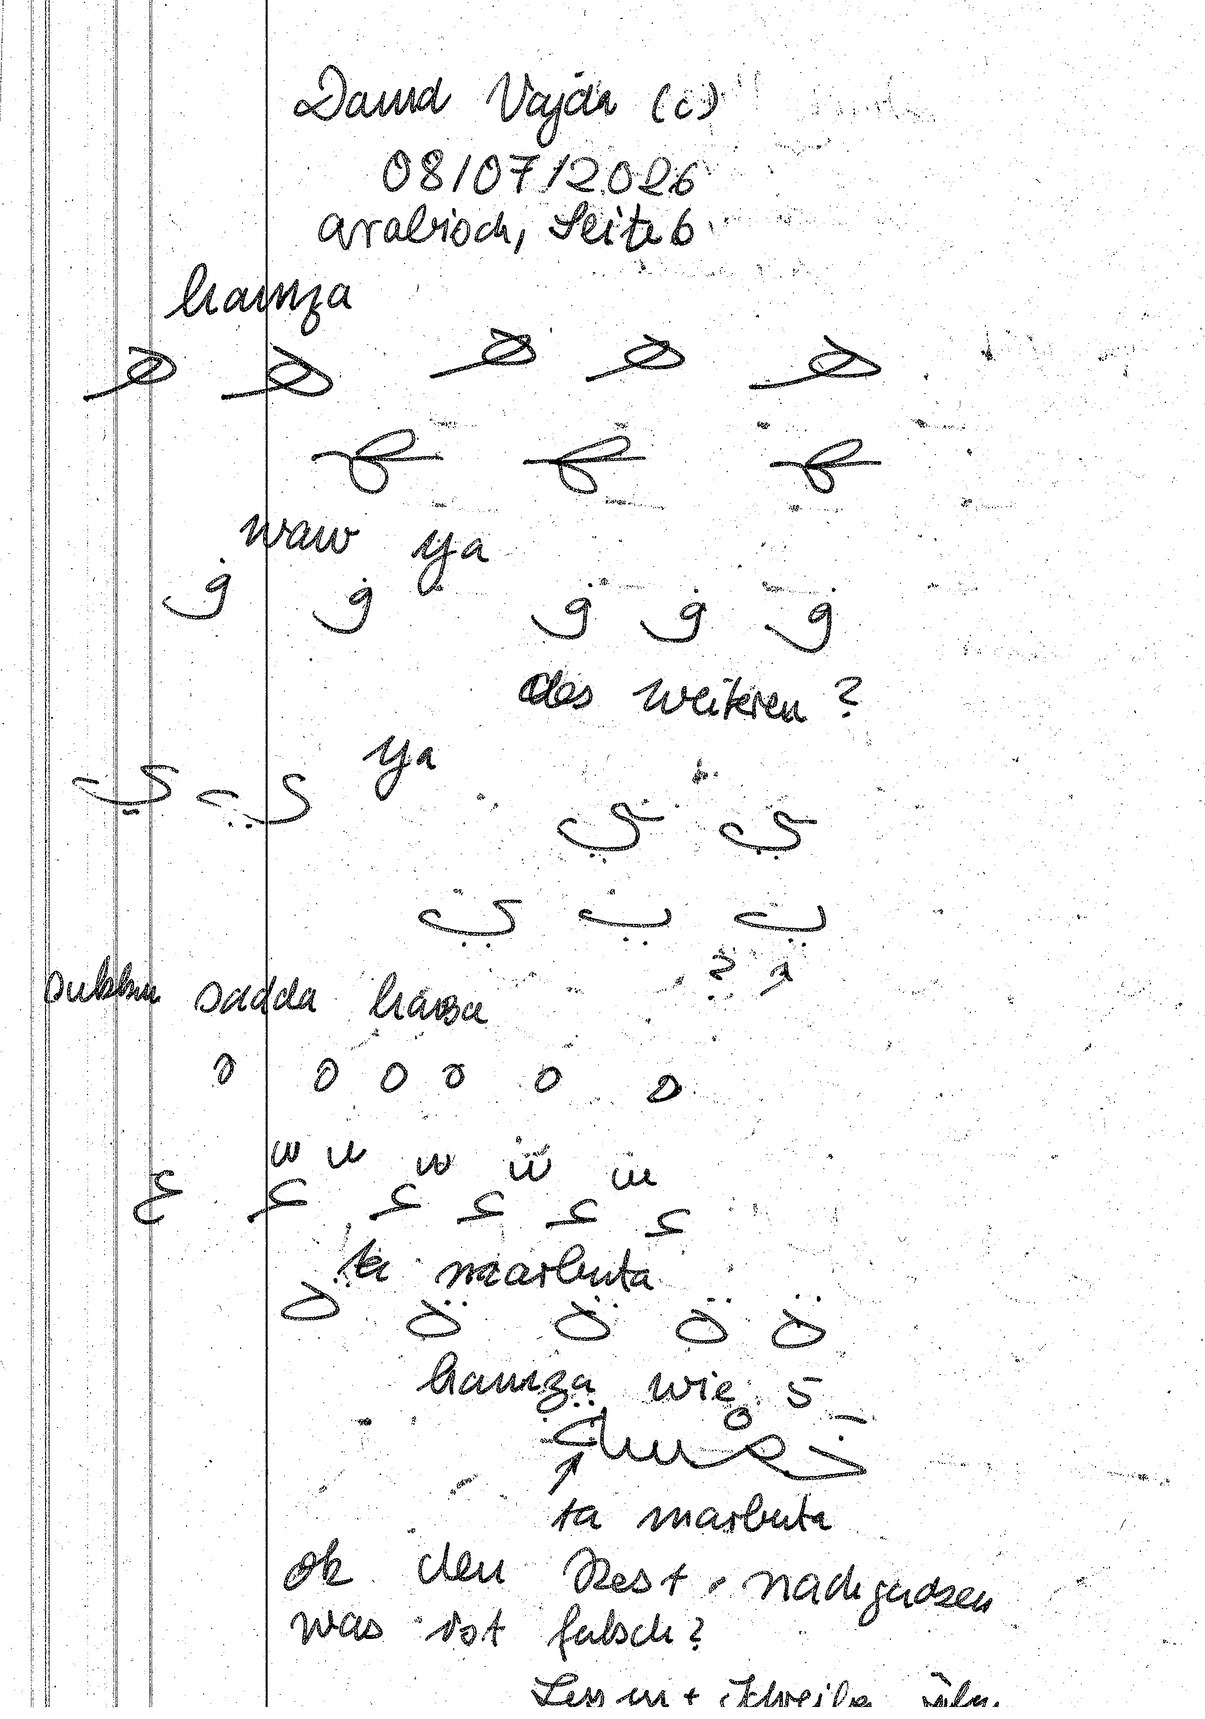 David Vajda (c)
08/07/2026
arabisch, Seite 6
hamza
ه ه ه ه ه
waw ya
des weiteren?
ya
ي ي
ي ي
sukkun sadda hamza
ء ء ء ء ء
ta marbuta
ة ة ة ة ة
hamza wie 5
خَمْسة
ta marbuta
ok den Rest nachgucken
was ist falsch?